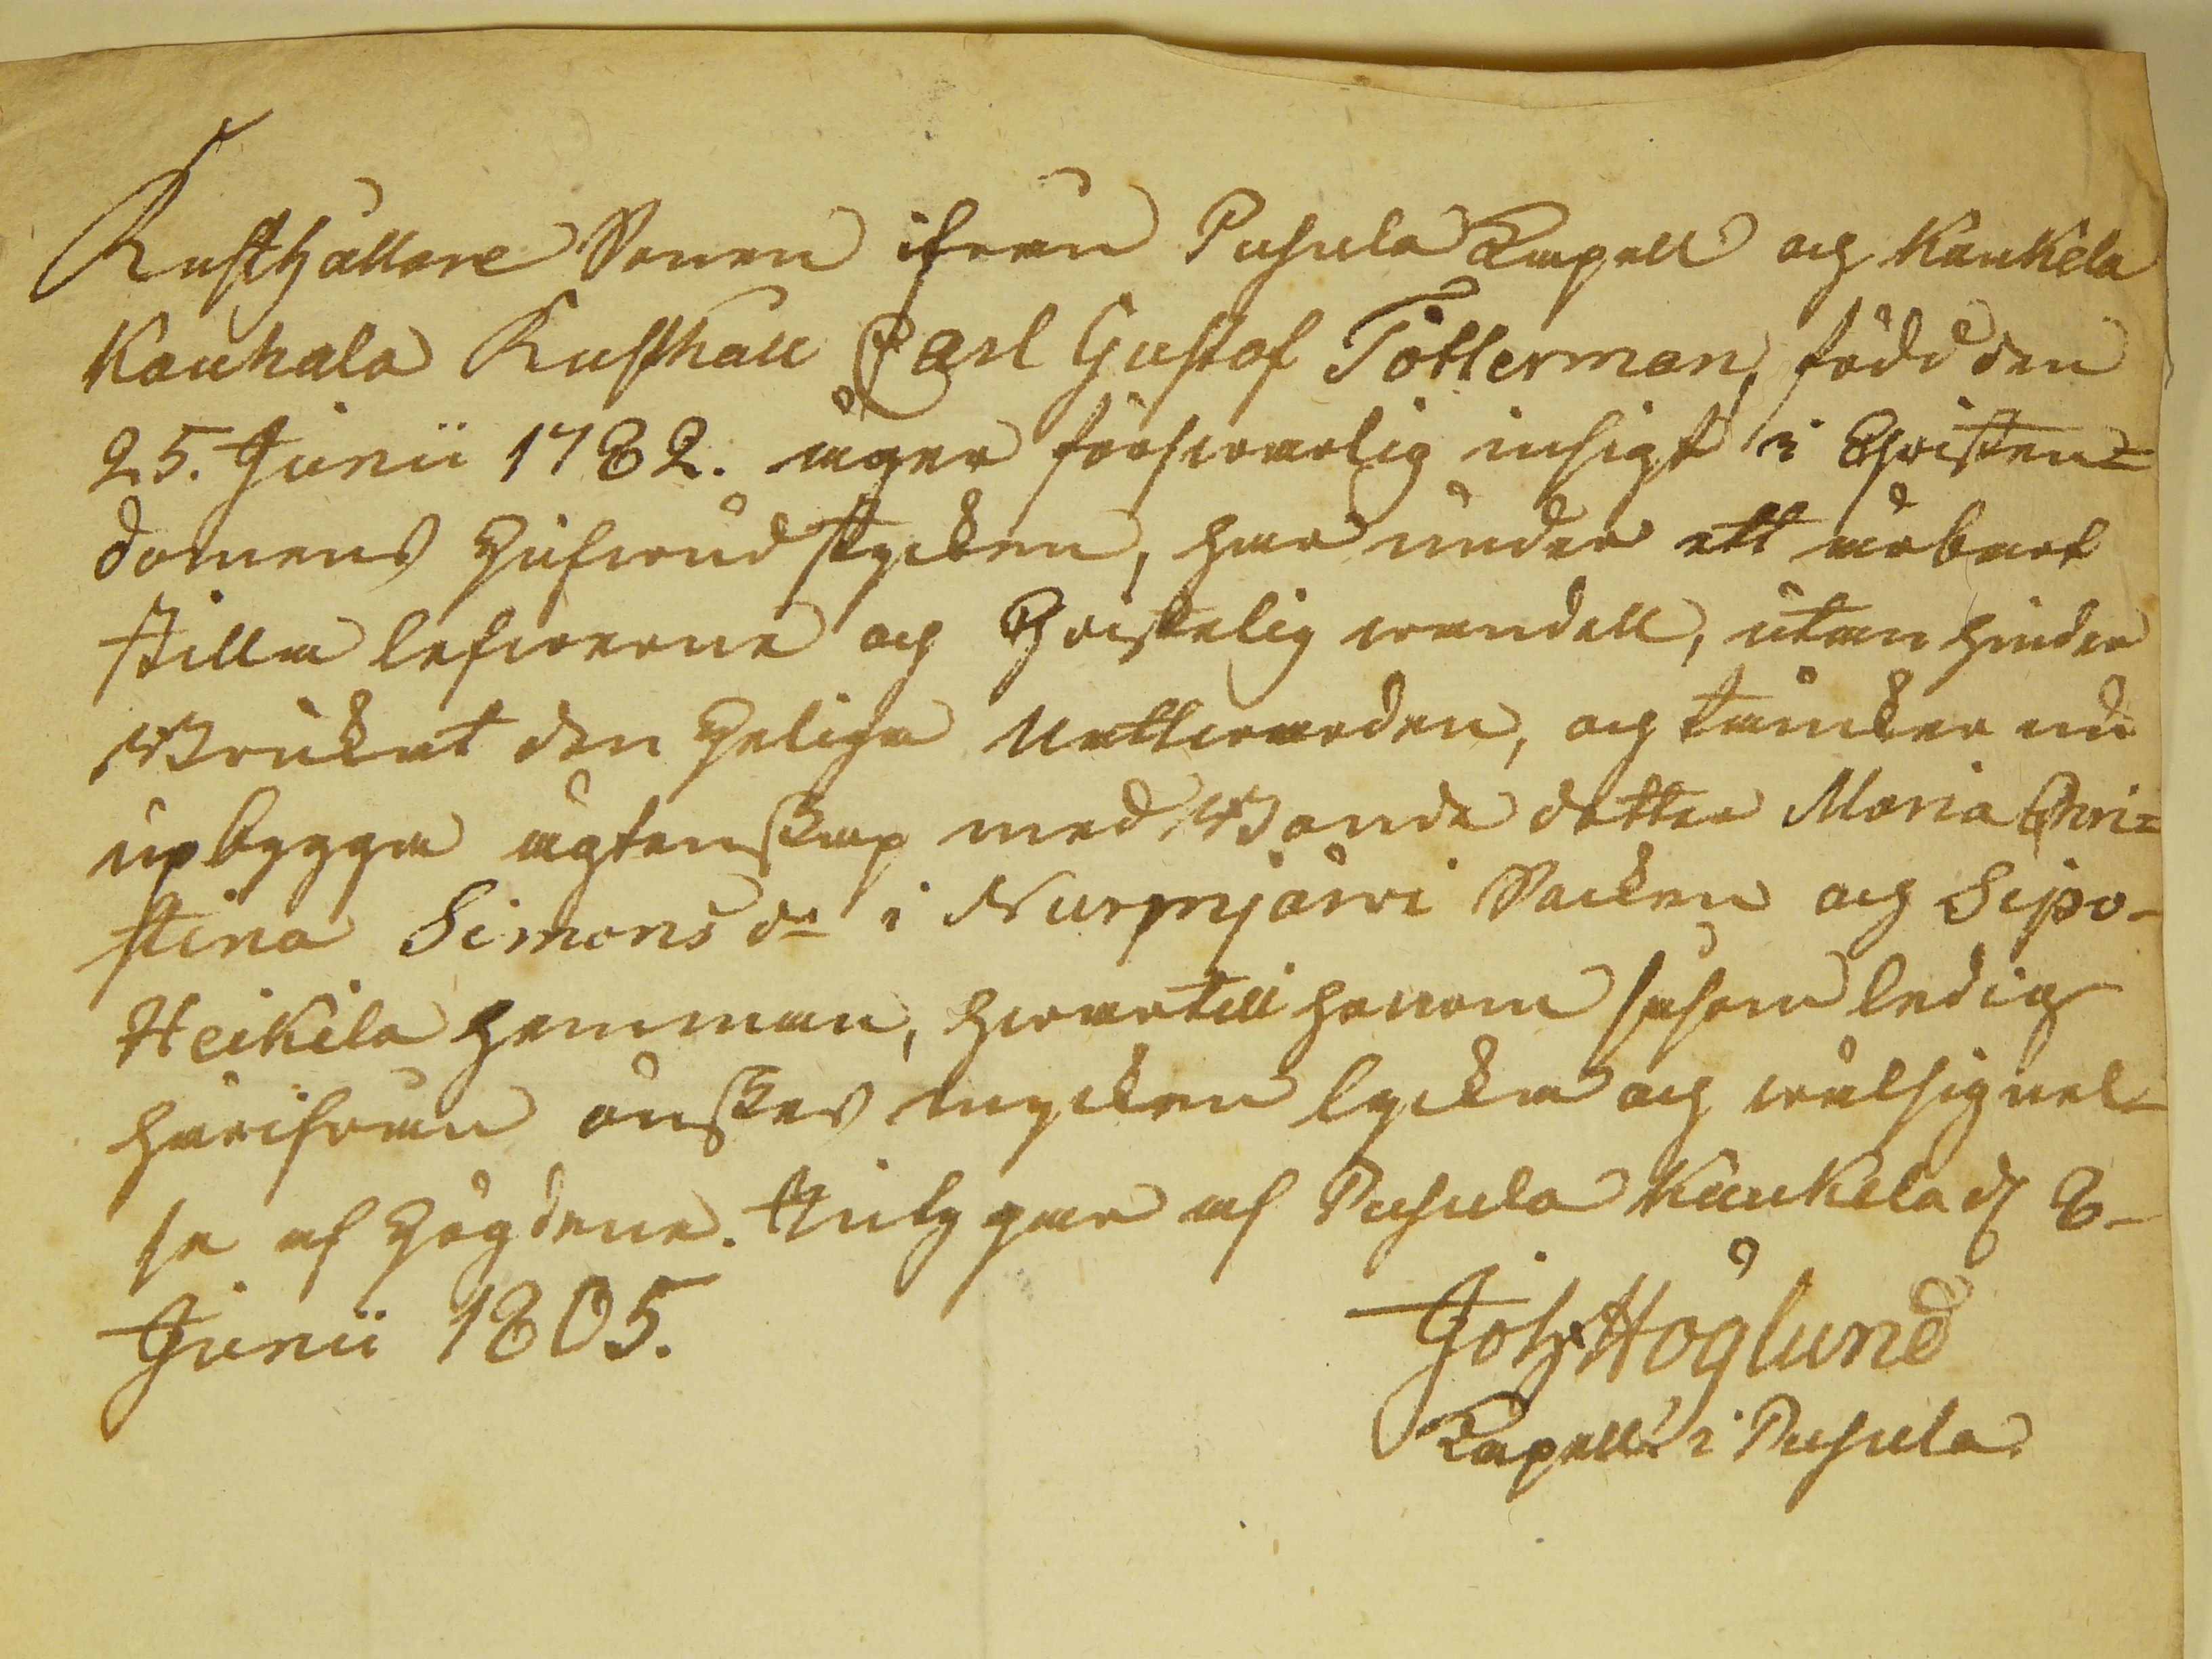 Rusthållare Sonen ifrån Pusula Capell och Kaukela
Kouhala Rusthåll Carl Gustof Tötterman, född den
25. Junii 1782. äger försvarlig insigt i Christen=
domens Hufvud stycken, har under ett ärbart
stilla lefverne och Christelig vandell, utan hinder
Brukat den Heliga Nattvarden, och täncker nu
upbygga ägtenskap med Bonde dotter Maria Chri=
stina Simons dr i Nurmjärvi Socken och Sipo-
Heikila hemman, hvartill honom såsom ledig
härifrån önskes mycken lycka och välsignel-
se af Högdene. Attesterar af Pusula Kaukela d 8-
Junii 1805.
Joh: Höglund
Capell: i Pusula